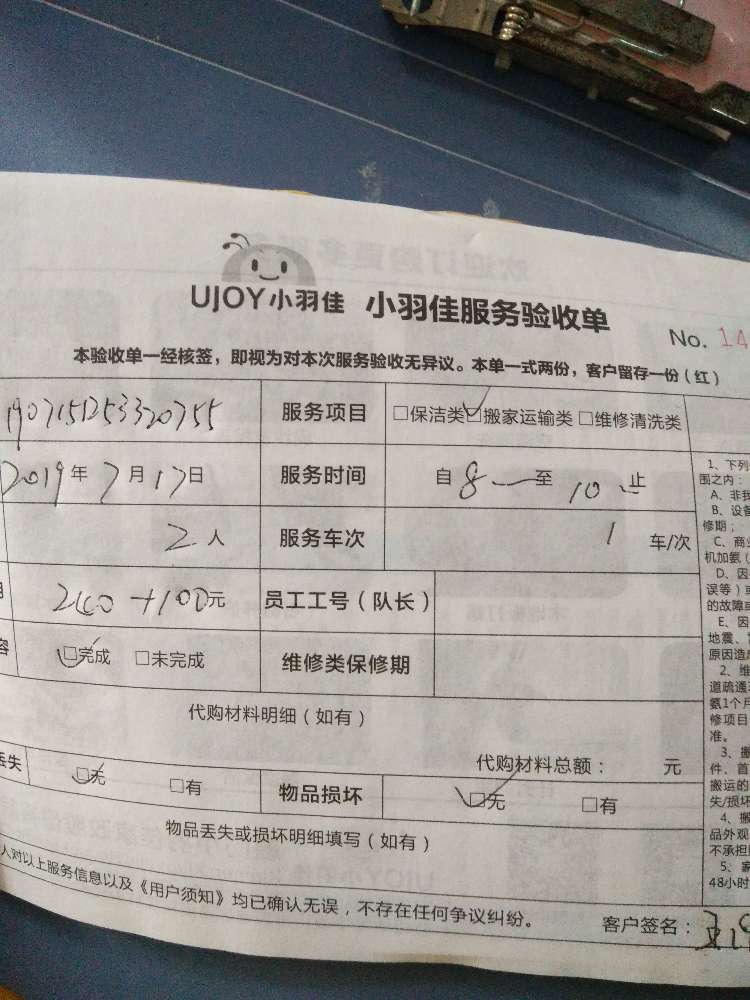 UJOY小羽佳 小羽佳服务验收单
No. 14
本验收单一经核签，即视为对本次服务验收无异议。本单一式两份，客户留存一份（红）
1907151253320755 服务项目 □保洁类 ☑搬家运输类 □维修清洗类
2019年7月17日 服务时间 自8至10止
2人 服务车次 1车/次
+100元 员工工号（队长）
☑完成 □未完成 维修类保修期
代购材料明细（如有）
代购材料总额： 元
丢失 ☑无 □有 物品损坏 ☑无 □有
物品丢失或损坏明细填写（如有）
人对以上服务信息以及《用户须知》均已确认无误，不存在任何争议纠纷。
客户签名：
1、下列
围之内：
A、非我
B、设备
修期；
C、商业
机加氨（
D、因
误等）或
的故障或
E、因
地震、
原因造成
2、维
道疏通
氨1个月
修项目
准。
3、搬
件、首
搬运的
失/损坏
4、搬
品外观
不承担
5、客
48小时